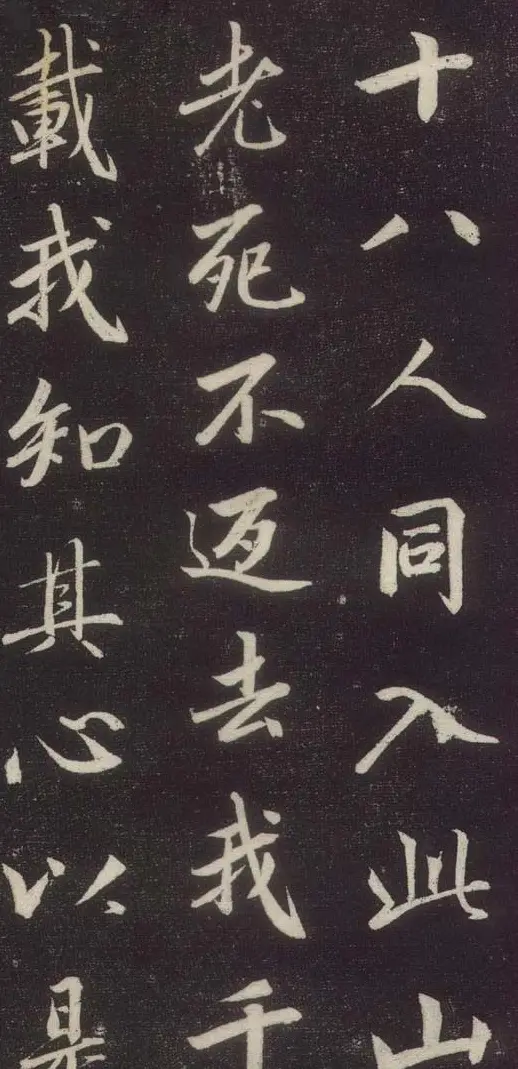 十八人同入此山
老死不𨓏去我千
載我知其心以是